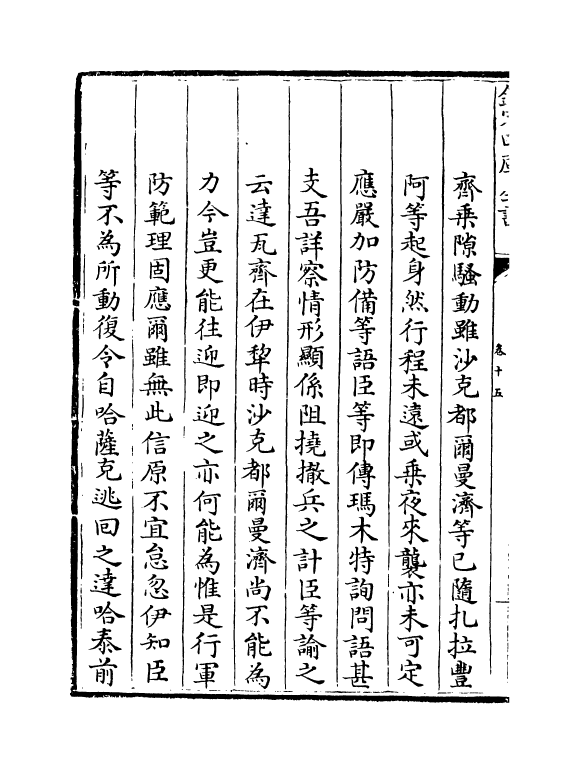 欽定四庫全書
卷十五
齊乘隙騷動雖沙克都爾曼濟等已隨扎拉豐
阿等起身然行程未遠或乗夜來襲亦未可定
應嚴加防備等語臣等即傳瑪木特詢問語甚
支吾詳察情形顯係阻撓撤兵之計臣等諭之
云達瓦齊在伊犂時沙克都爾曼濟尚不能為
力今豈更能往迎即迎之亦何能為惟是行軍
防範理固應爾雖無此信原不宜怠忽伊知臣
等不為所動復令自哈薩克逃回之達哈泰前